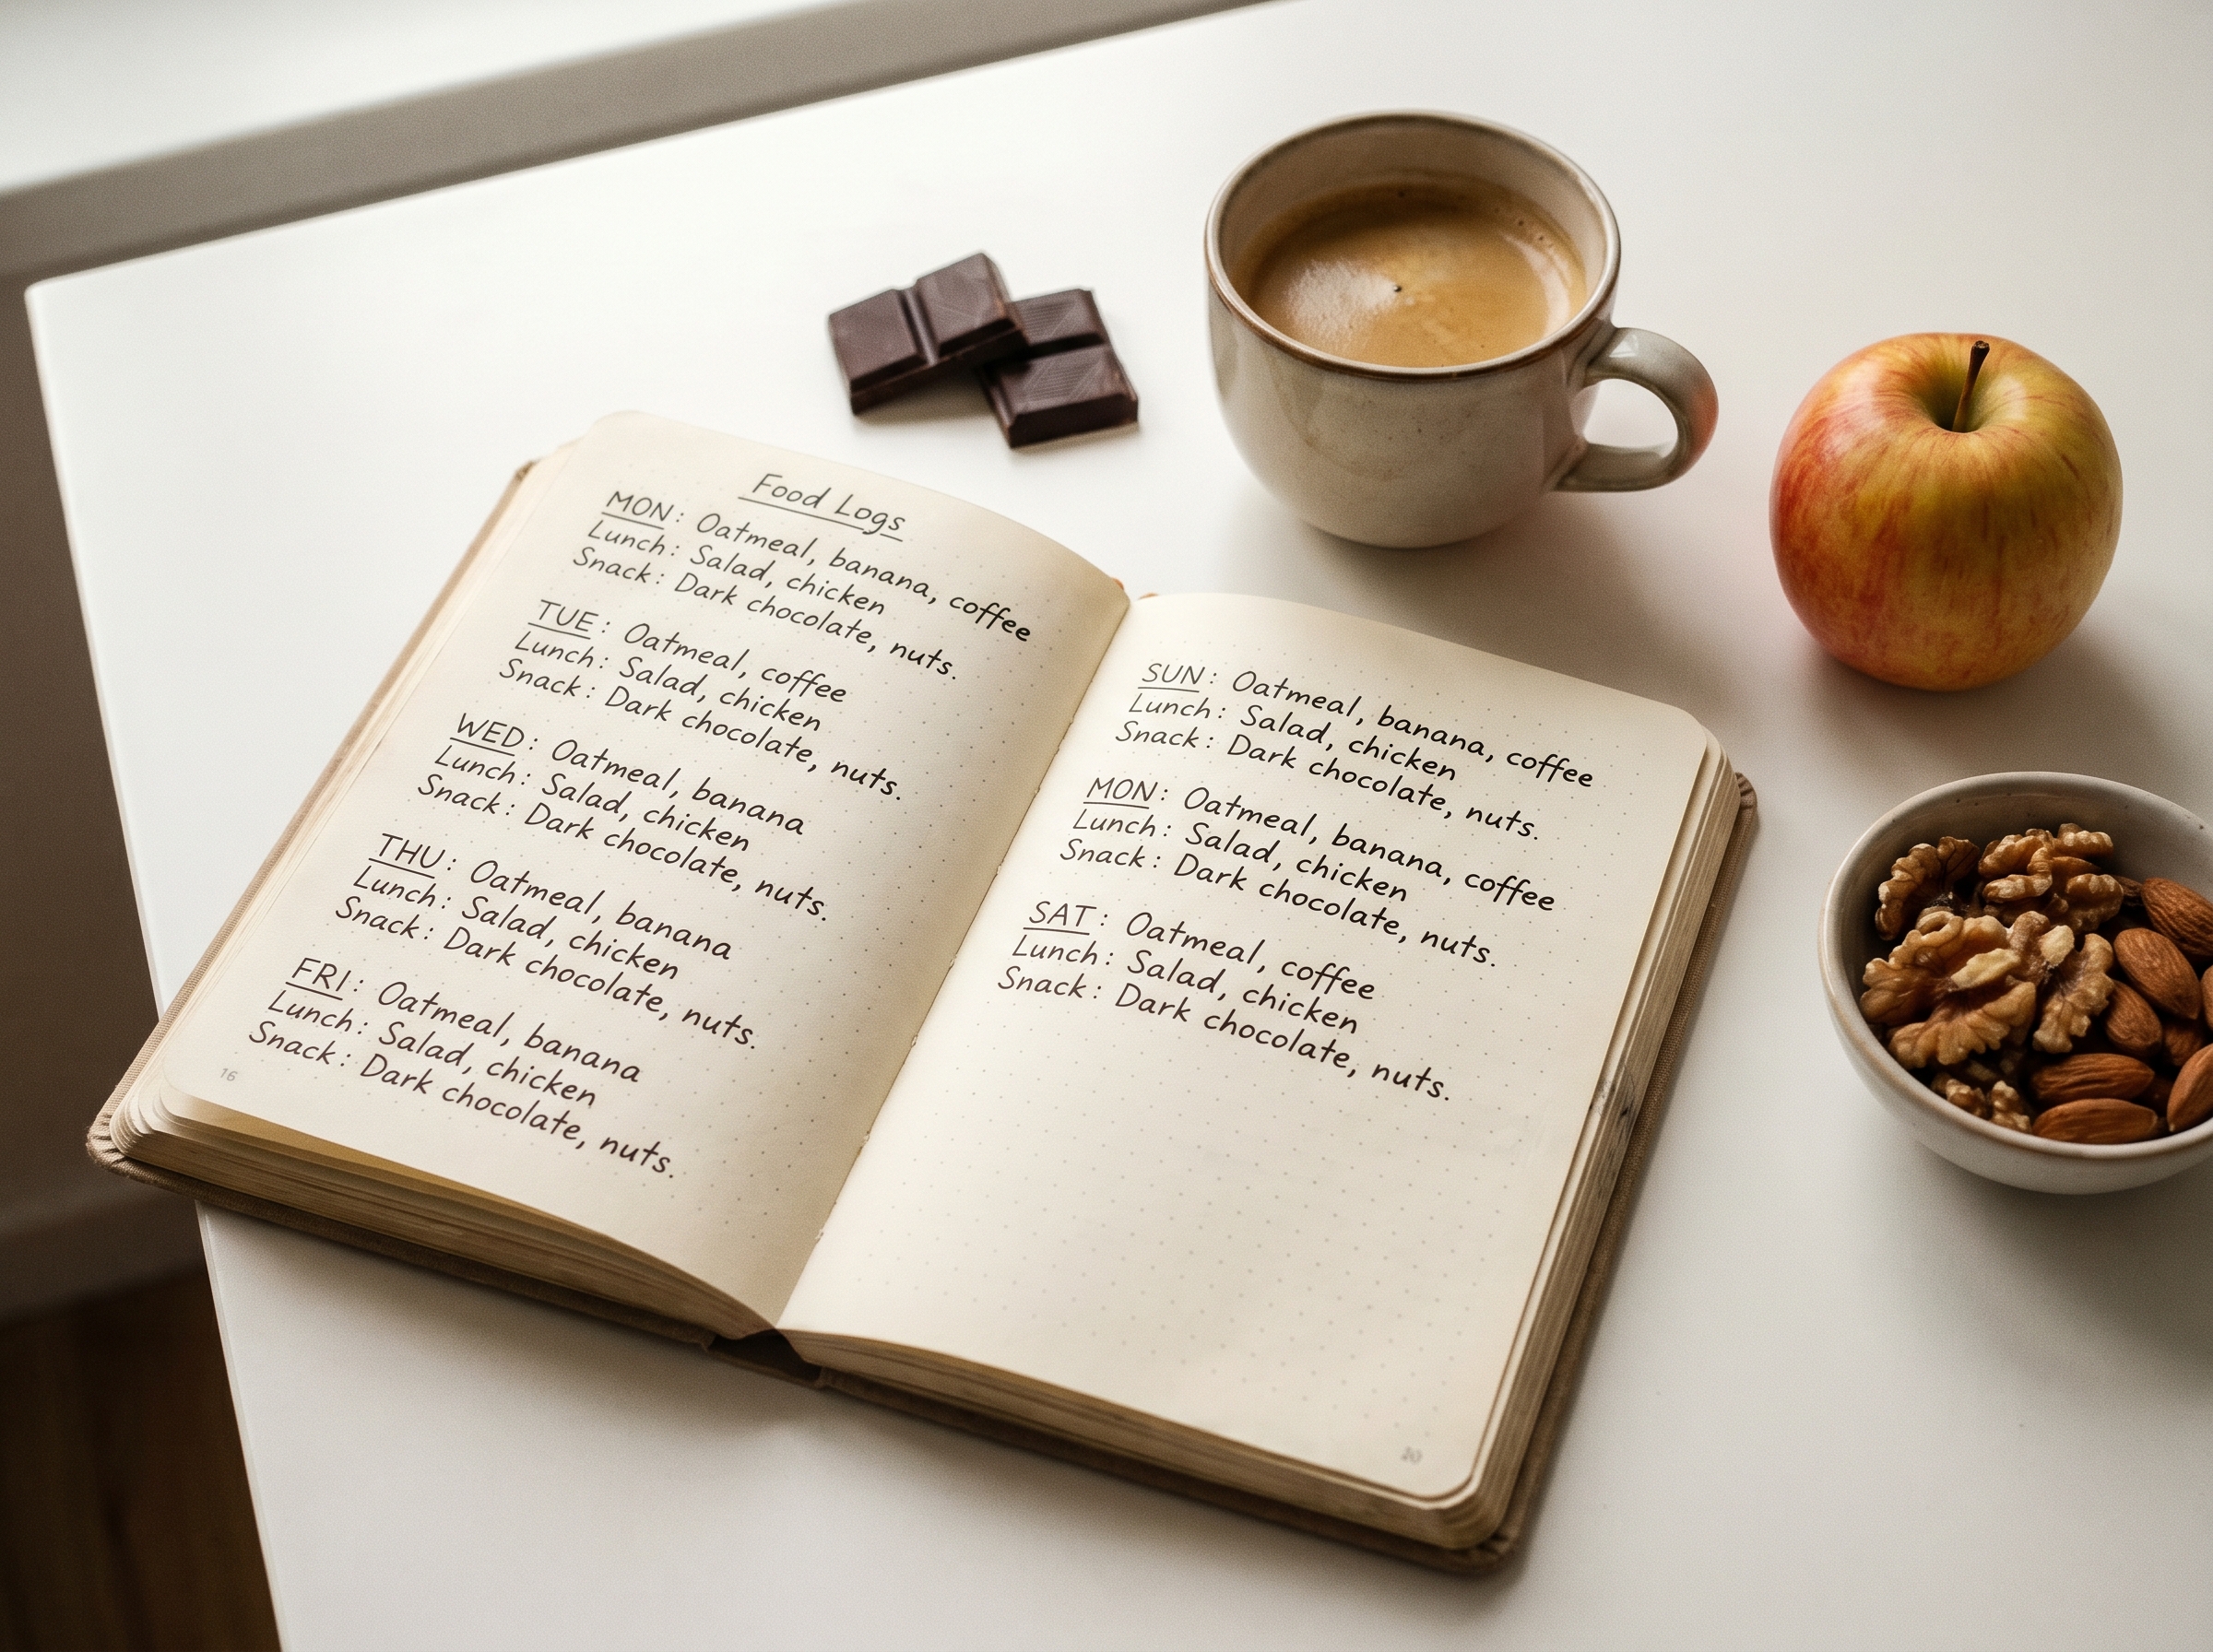 Food Logs
MON: Oatmeal, banana, coffee
Lunch: Salad, chicken
Snack: Dark chocolate, nuts.
TUE: Oatmeal, coffee
Lunch: Salad, chicken
Snack: Dark chocolate, nuts.
WED: Oatmeal, banana
Lunch: Salad, chicken
Snack: Dark chocolate, nuts.
THU: Oatmeal, banana
Lunch: Salad, chicken
Snack: Dark chocolate, nuts.
FRI: Oatmeal, banana
Lunch: Salad, chicken
Snack: Dark chocolate, nuts.
16
SUN: Oatmeal, banana, coffee
Lunch: Salad, chicken
Snack: Dark chocolate, nuts.
MON: Oatmeal, banana, coffee
Lunch: Salad, chicken
Snack: Dark chocolate, nuts.
SAT: Oatmeal, coffee
Lunch: Salad, chicken
Snack: Dark chocolate, nuts.